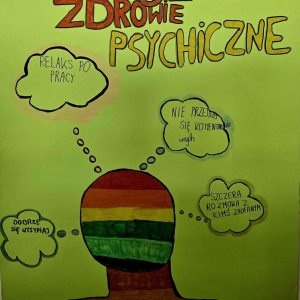 ZDROWIE
PSYCHICZNE
RELAKS PO
PRACY
NIE PRZEJMUJ
SIĘ KOMENTARZAMI
innych
SZCZERA
ROZMOWA Z
KIMŚ ZAUFANYM
DOBRZE
SIĘ WYSYPIAJ